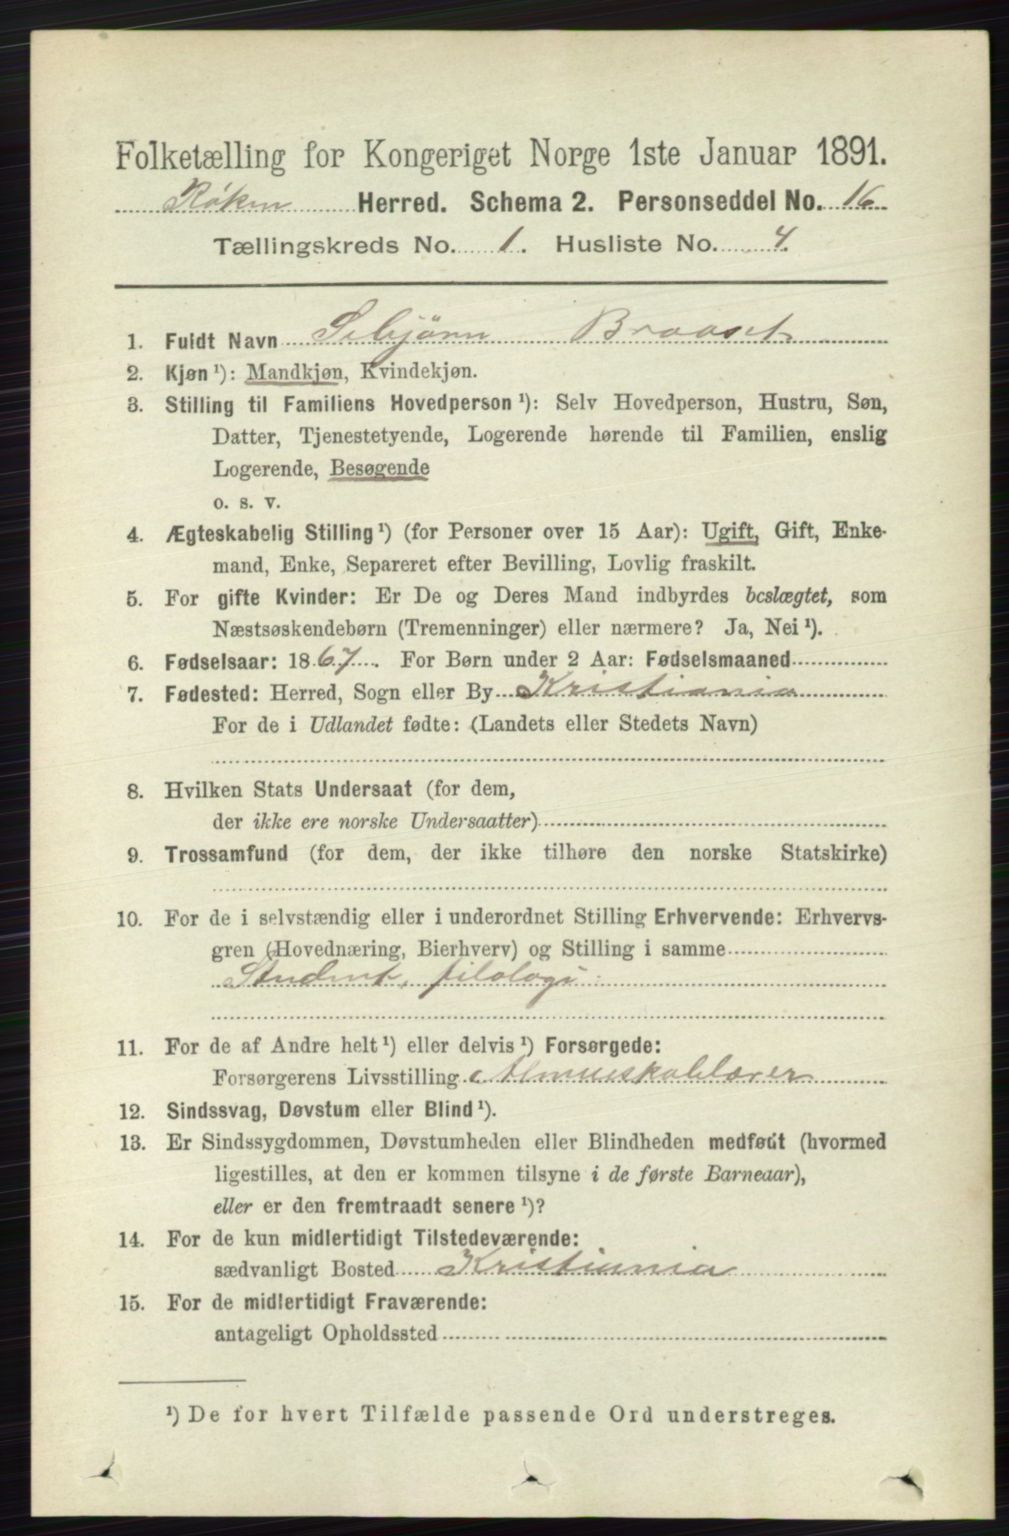 Folketælling for Kongeriget Norge 1ste Januar 1891.
Røken Herred. Schema 2. Personseddel No. 16
Tællingskreds No. 1. Husliste No. 4.
1. Fuldt Navn Sebjørn Braaset
2. Kjøn ¹): Mandkjøn, Kvindekjøn.
3. Stilling til Familiens Hovedperson ¹): Selv Hovedperson, Hustru, Søn,
Datter, Tjenestetyende, Logerende hørende til Familien, enslig
Logerende, Besøgende
o. s. v.
4. Ægteskabelig Stilling ¹) (for Personer over 15 Aar): Ugift, Gift, Enke-
mand, Enke, Separeret efter Bevilling, Lovlig fraskilt.
5. For gifte Kvinder: Er De og Deres Mand indbyrdes beslægtet, som
Næstsøskendebørn (Tremenninger) eller nærmere? Ja, Nei ¹).
6. Fødselsaar: 1867. For Børn under 2 Aar: Fødselsmaaned
7. Fødested: Herred, Sogn eller By Kristiania
For de i Udlandet fødte: (Landets eller Stedets Navn)
8. Hvilken Stats Undersaat (for dem,
der ikke ere norske Undersaatter)
9. Trossamfund (for dem, der ikke tilhøre den norske Statskirke)
10. For de i selvstændig eller i underordnet Stilling Erhvervende: Erhvervs-
gren (Hovednæring, Bierhverv) og Stilling i samme
Student, filologi
11. For de af Andre helt ¹) eller delvis ¹) Forsørgede:
Forsørgerens Livsstilling Almueskolelærer
12. Sindssvag, Døvstum eller Blind ¹).
13. Er Sindssygdommen, Døvstumheden eller Blindheden medfødt (hvormed
ligestilles, at den er kommen tilsyne i de første Barneaar),
eller er den fremtraadt senere ¹)?
14. For de kun midlertidigt Tilstedeværende:
sædvanligt Bosted Kristiania
15. For de midlertidigt Fraværende:
antageligt Opholdssted
¹) De for hvert Tilfælde passende Ord understreges.